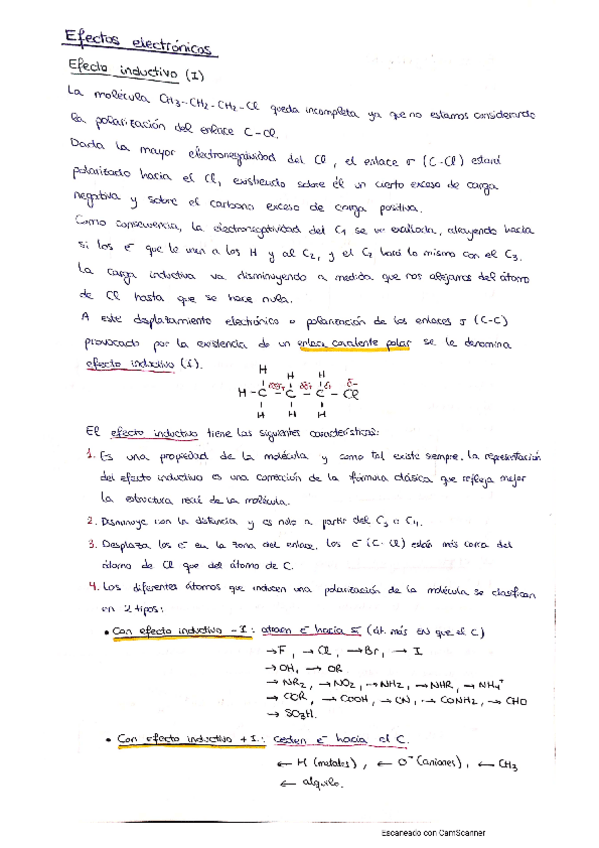 Efectos electrónicos
Efecto inductivo (I)
La molécula CH3-CH2-CH2-Cl queda incompleta ya que no estamos considerando
la polarización del enlace C-Cl.
Dada la mayor electronegatividad del Cl, el enlace σ (C-Cl) estará
polarizado hacia el Cl, existiendo sobre él un cierto exceso de carga
negativa y sobre el carbono exceso de carga positiva.
Como consecuencia, la electronegatividad del C1 se ve exaltada, atrayendo hacia
sí los e- que le unen a los H y al C2, y el C2 hará lo mismo con el C3.
La carga inductiva va disminuyendo a medida que nos alejamos del átomo
de Cl hasta que se hace nula.
A este desplazamiento electrónico o polarización de los enlaces σ (C-C)
provocado por la existencia de un enlace covalente polar se le denomina
efecto inductivo (I).
H H H
H-C-C-C-Cl
H H H
El efecto inductivo tiene las siguientes características:
1. Es una propiedad de la molécula y como tal existe siempre, la representación
del efecto inductivo es una corrección de la fórmula clásica que refleja mejor
la estructura real de la molécula.
2. Disminuye con la distancia y es nulo a partir del C3 o C4.
3. Desplaza los e- en la zona del enlace, los e- (C-Cl) están más cerca del
átomo de Cl que del átomo de C.
4. Los diferentes átomos que inducen una polarización de la molécula se clasifican
en 2 tipos:
• Con efecto inductivo -I: atraen e- hacia sí (át. más EN que el C)
→F, →Cl, →Br, →I
→OH, →OR
→NR2, →NO2, →NH2, →NHR, →NH4+
→COR, →COOH, →CN, →CONH2, →CHO
→SO3H.
• Con efecto inductivo +I: ceden e- hacia el C.
← H (metales), ← O- (aniones), ← CH3
← alquilo.
Escaneado con CamScanner